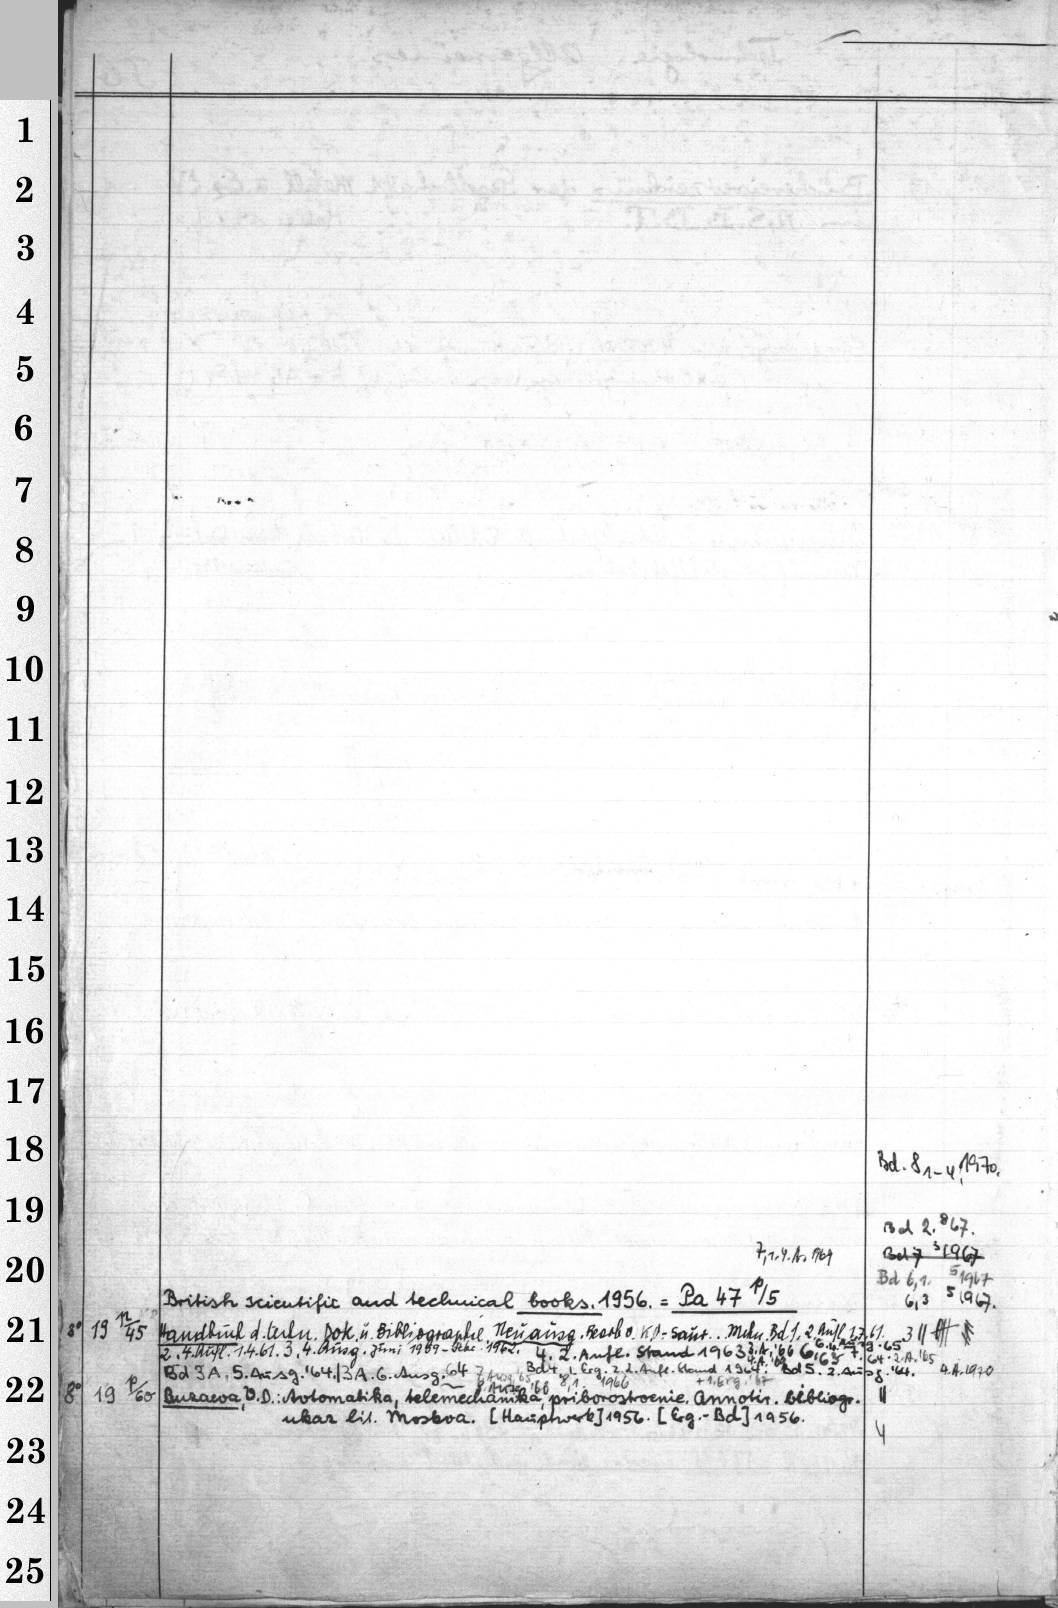 1
2
3
4
5
6
7
8
9
10
11
12
13
14
15
16
17
18
Bd. 8 1-4, 1970.
19
Bd 2. 8 67.
7,1. 4. A. 1969
Bd 7 3 1967
20
Bd 6,1. 5 1967
6,3 5 1967.
British scientific and technical books. 1956. = Pa 47 p/5
21
8° 19 n/45 Handbuch d. techn. Dok. u. Bibliographie. Neuausg. Bearb v. K.O. Saur. Mchn. Bd 1, 2. Aufl.
2. 4. Aufl. 1.4.61. 3, 4. Ausg. Juni 1959 - 1962. 4. 2. Aufl. Stand 1963
Bd 3A, 5. Ausg. '64. 3A. 6. Ausg. 64 Bd 4, 1. Erg. z. 2. Aufl. Stand 1964. Bd 5. 2. Ausg. '64. 4.A. 1970
8,1 1966 + 1. Erg. '67
22
8° 19 p/60 Buzaeva, V. D.: Avtomatika, telemechanika, priborostroenie. Annotir. bibliogr.
ukaz lit. Moskva. [Hauptwerk] 1956. [Erg.-Bd] 1956.
4
23
24
25